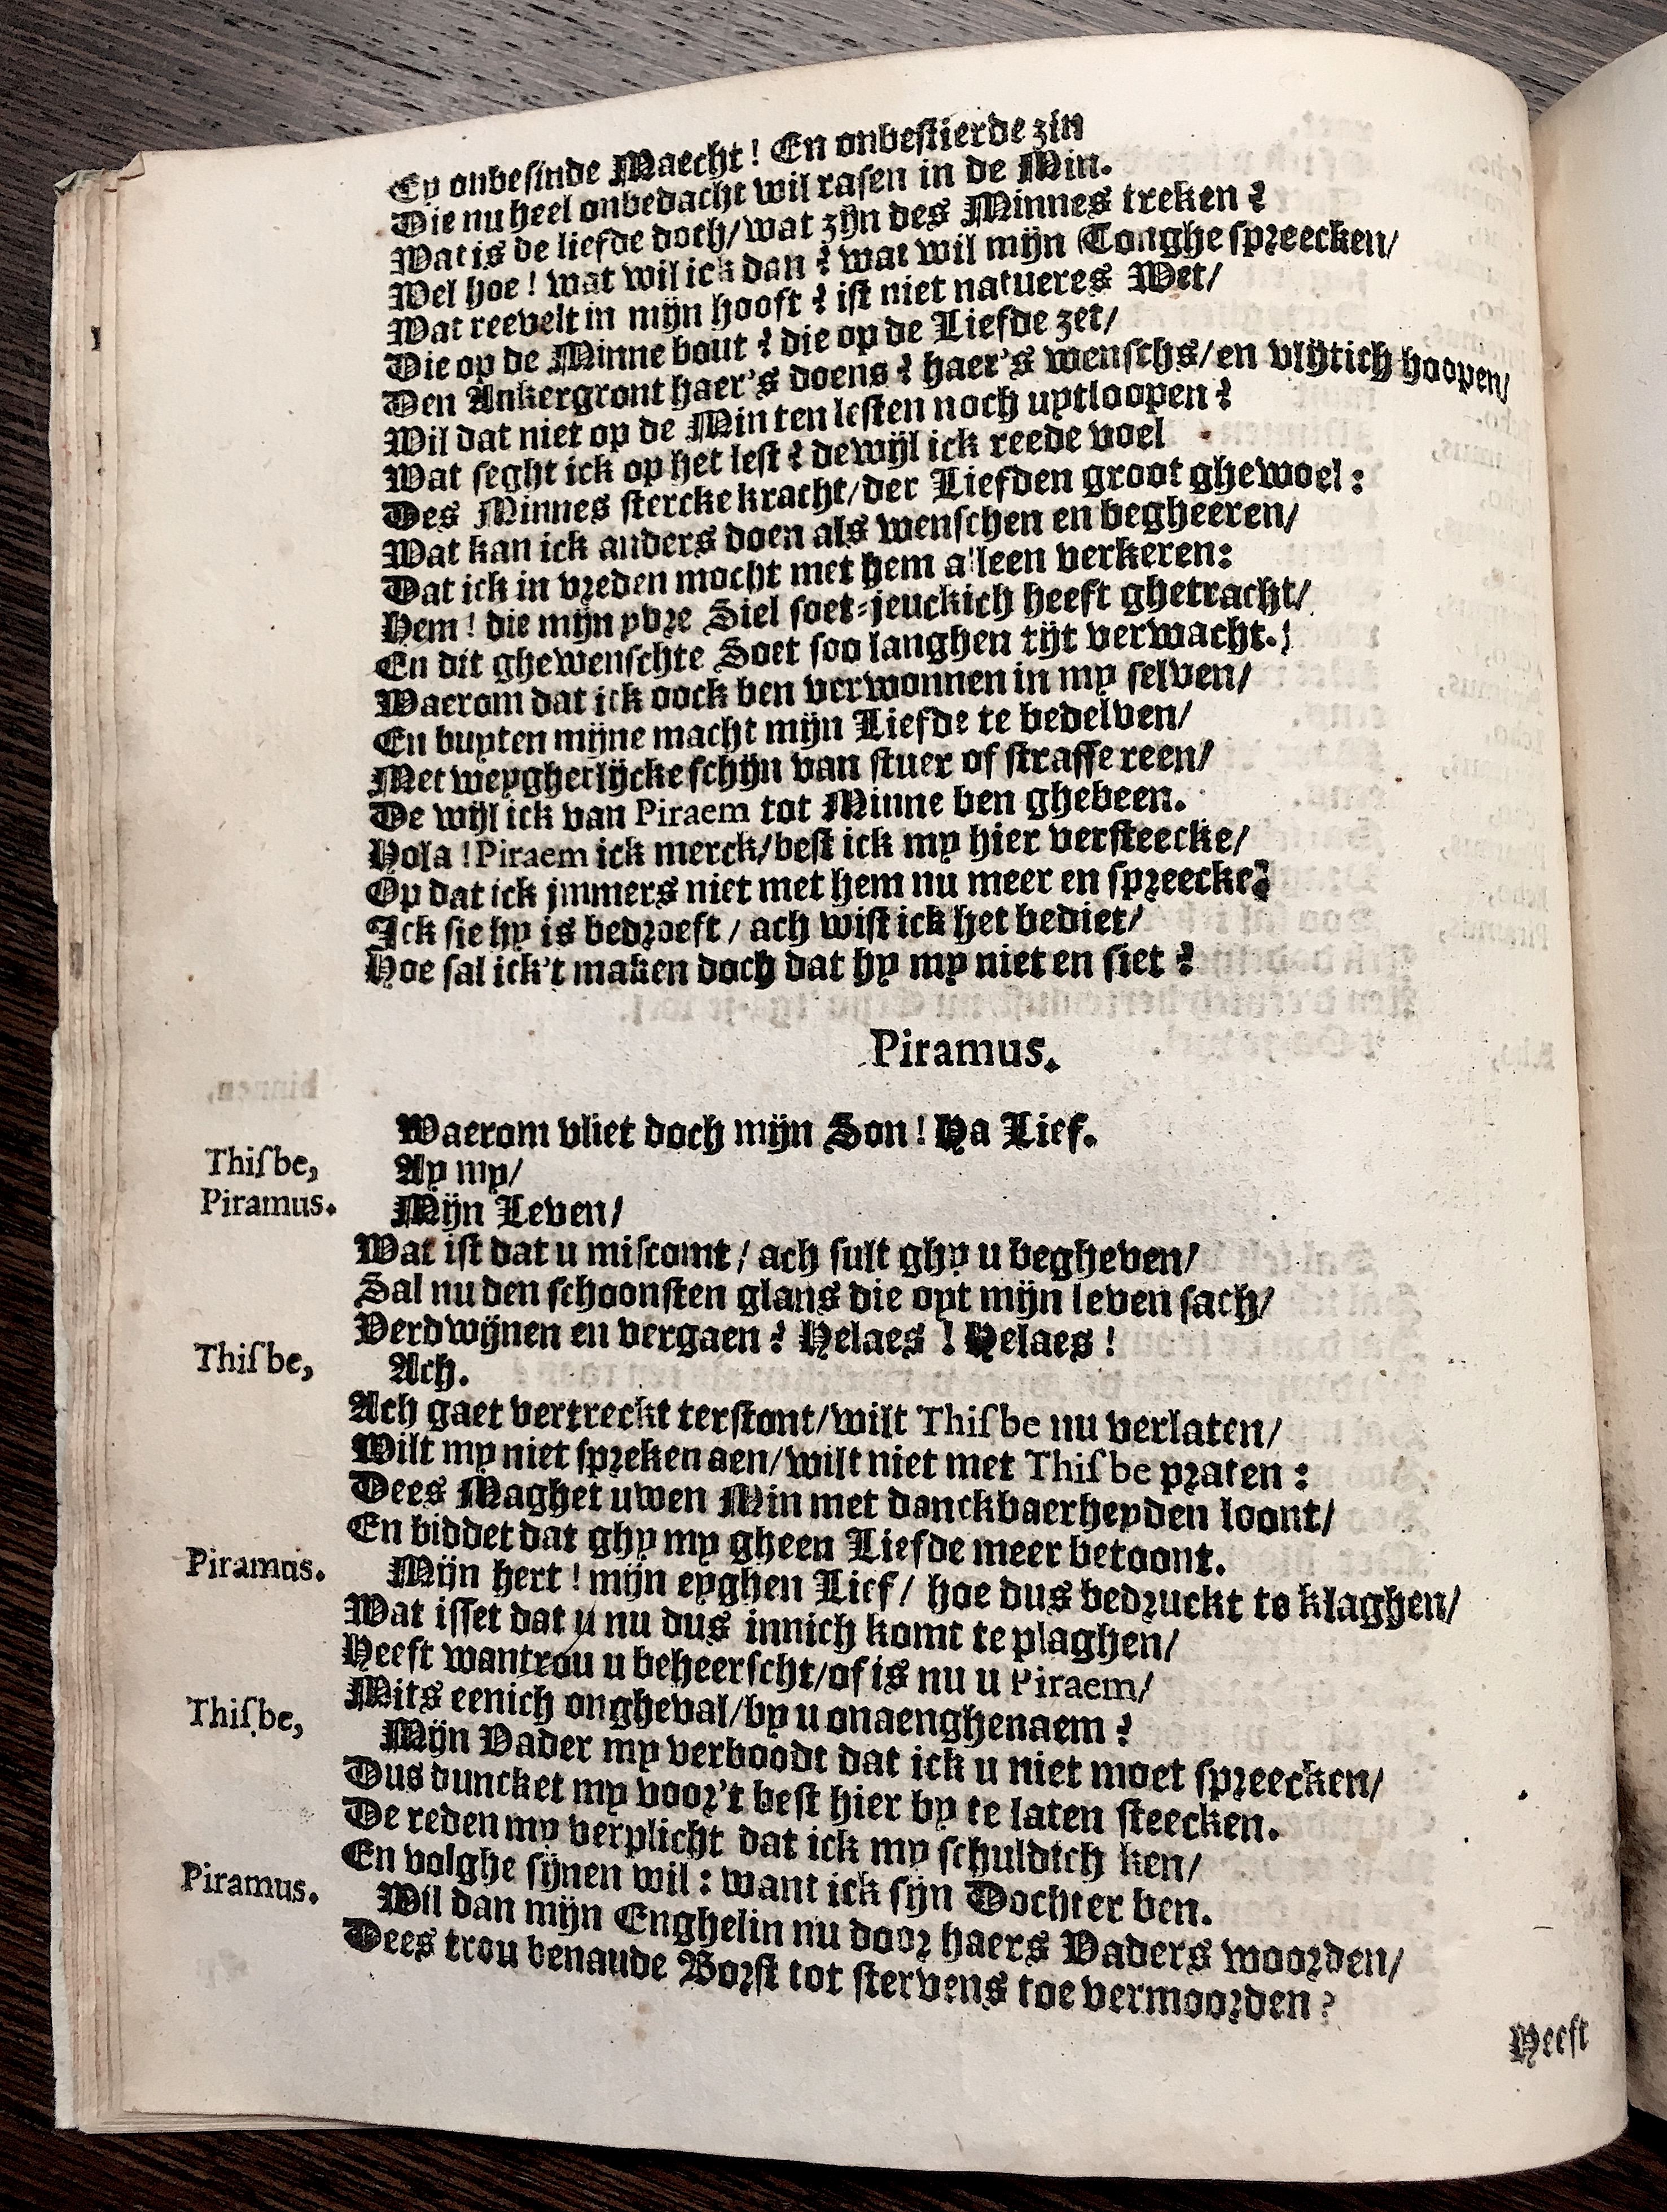 Ey onbesinde Maecht! En onbestierde zin
Die nu heel onbedacht wil rasen in de Min.
Wat is de liefde doch/wat zijn des Minnes treken?
Wel hoe! wat wil ick dan? wat wil mijn Tonghe spreecken/
Wat reevelt in mijn hooft? ist niet natueres Wet/
Die op de Minne bout? die op de Liefde zet/
Den Ankergront haer's doens? haer's wenschs/en vlijtich hoopen/
Wil dat niet op de Min ten lesten noch uytloopen?
Wat seght ick op het lest? dewijl ick reede voel
Des Minnes stercke kracht/der Liefden groot ghewoel:
Wat kan ick anders doen als wenschen en begheeren/
Dat ick in vreden mocht met hem alleen verkeren:
Hem! die mijn pure Siel soet-jeuckich heeft ghetracht/
En dit ghewenschte Soet soo langhen tijt verwacht.
Waerom dat ick oock ben verwonnen in my selven/
En buyten mijne macht mijn Liefde te bedelven/
Met weygherlijcke schijn van stuer of straffe reen/
De wijl ick van Piraem tot Minne ben ghebeen.
Hola! Piraem ick merck/best ick my hier versteecke/
Op dat ick jmmers niet met hem nu meer en spreecke?
Ick sie hy is bedroeft/ ach wist ick het bediet/
Hoe sal ick't maken doch dat hy my niet en siet?
Piramus.
Waerom vliet doch mijn Son! Ha Lief.
Thisbe, Ay my/
Piramus. Mijn Leven/
Wat ist dat u miscomt/ ach sult ghy u begheven/
Sal nu den schoonsten glans die oyt mijn leven sach/
Verdwijnen en vergaen? Helaes! Helaes!
Thisbe, Ach.
Ach gaet vertreckt terstont/wilt Thisbe nu verlaten/
Wilt my niet spreken aen/wilt niet met Thisbe praten:
Dees Maghet uwen Min met danckbaerheyden loont/
En biddet dat ghy my gheen Liefde meer betoont.
Piramus. Mijn hert! mijn eyghen Lief/ hoe dus bedruckt te klaghen/
Wat isset dat u nu dus innich komt te plaghen/
Heeft wantrou u beheerscht/of is nu u Piraem/
Mits eenich ongheval/by u onaenghenaem?
Thisbe, Mijn Vader my verboodt dat ick u niet moet spreecken/
Dus duncket my voor't best hier by te laten steecken.
De reden my verplicht dat ick my schuldich ken/
En volghe sijnen wil: want ick sijn Dochter ben.
Piramus. Wil dan mijn Enghelin nu door haers Vaders woorden/
Dees trou benaude Borst tot stervens toe vermoorden?
Heeft